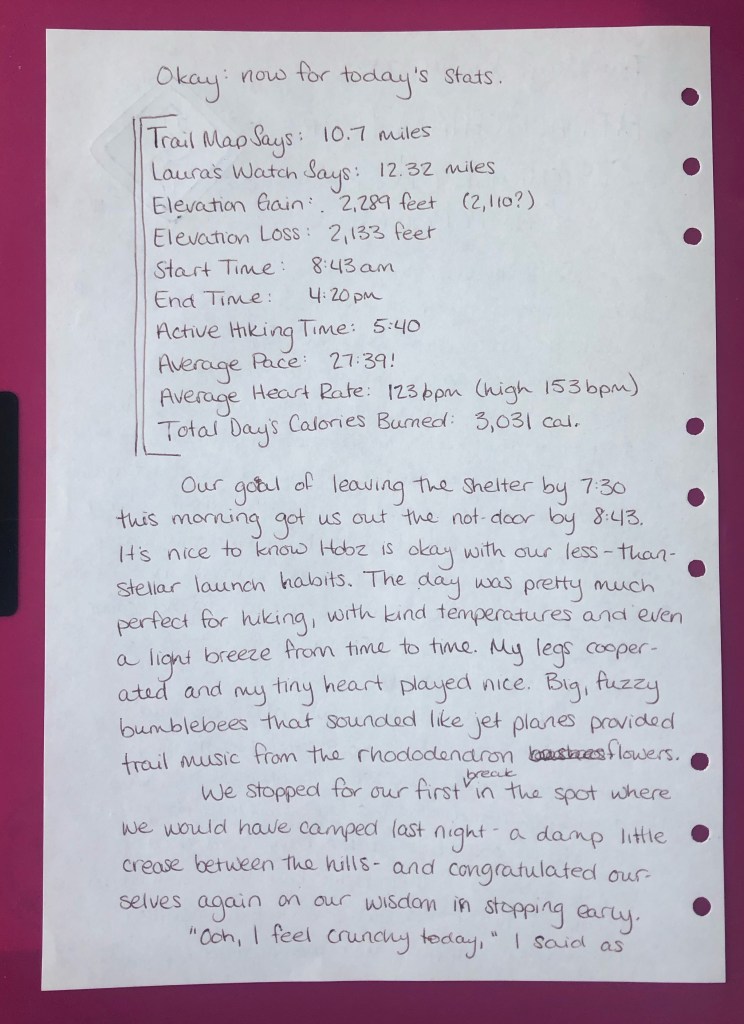 Okay: now for today's stats.
Trail Map Says: 10.7 miles
Laura's Watch Says: 12.32 miles
Elevation Gain: 2,289 feet (2,110?)
Elevation Loss: 2,133 feet
Start Time: 8:43am
End Time: 4:20pm
Active Hiking Time: 5:40
Average Pace: 27:39!
Average Heart Rate: 123bpm (high 153bpm)
Total Day's Calories Burned: 3,031 cal.
Our goal of leaving the shelter by 7:30
this morning got us out the not-door by 8:43.
It's nice to know Hobz is okay with our less-than-
stellar launch habits. The day was pretty much
perfect for hiking, with kind temperatures and even
a light breeze from time to time. My legs cooper-
ated and my tiny heart played nice. Big, fuzzy
bumblebees that sounded like jet planes provided
trail music from the rhododendron flowers.
We stopped for our first break in the spot where
we would have camped last night - a damp little
crease between the hills - and congratulated our-
selves again on our wisdom in stopping early.
"Ooh, I feel crunchy today," I said as